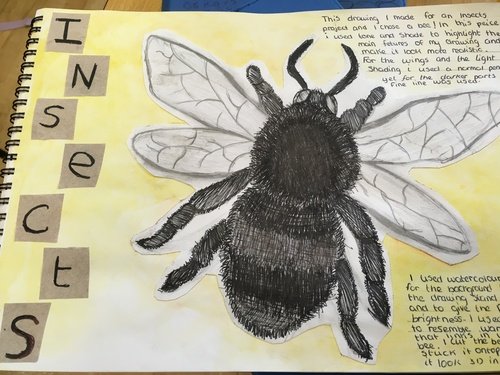 InsectS
This drawing I made for an insects
project and i chose a bee! In this peice
i used tone and shade to highlight the
main fetures of my drawing and
make it look more realistic.
For the wings and the light
Shading i used a normal pen
yet for the darker parts
Fine line was used.
I used watercolou
for the background
the drawing stand
and to give the
brightness. I used
to resemble war
that links in
bee. I cut the be
stuck it ontop
it look 3D in